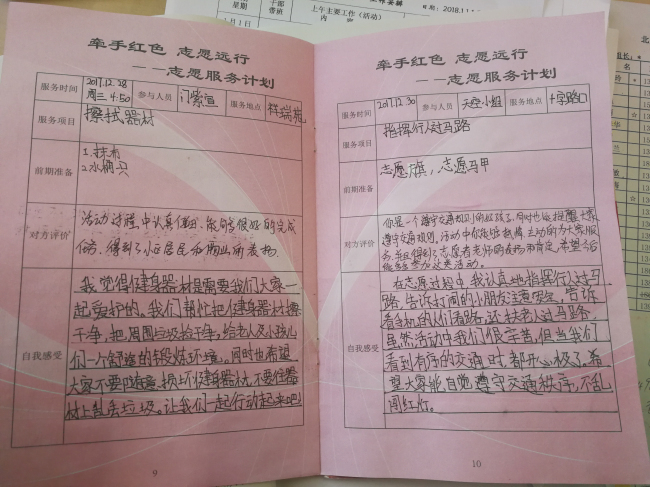 星期
干部
带班
上午主要工作(活动)
内 容
1月1日
牵手红色 志愿远行
——志愿服务计划
服务时间
2017.12.28
周三4:50
参与人员
门紫宣
服务地点
祥瑞苑
服务项目
擦拭器材
前期准备
1.抹布
2.水桶
对方评价
活动过程中认真仔细,能够很好的完成
任务,得到了小区居民和物业的表扬.
自我感受
我觉得健身器材是需要我们大家一
起爱护的。我们帮忙把健身器材擦
干净,把周围垃圾捡干净,给老人及小孩儿
们一个舒适的锻炼环境。同时也希望
大家不要踩踏,损坏健身器材,不要往器
材上乱丢垃圾。让我们一起行动起来吧!
9
牵手红色 志愿远行
——志愿服务计划
服务时间
2017.12.30
参与人员
天空小组
服务地点
十字路口
服务项目
指挥行人过马路
前期准备
志愿旗,志愿马甲
对方评价
你是一个遵守交通规则的好孩子,同时也能提醒大家
遵守交通规则,活动中你能够
主动的为大家服
务,并得到了志愿者老师的表扬和肯定,希望今后
继续参加这类活动。
自我感受
在志愿过程中,我认真地指挥行人过马
路,告诉打闹的小朋友注意安全,告诉
看手机的人们看路,还扶老人过马路,
虽然活动中我们很辛苦,但当我们
看到有序的交通时,都开心极了。希
望大家能自觉遵守交通秩序,不乱
闯红灯。
10